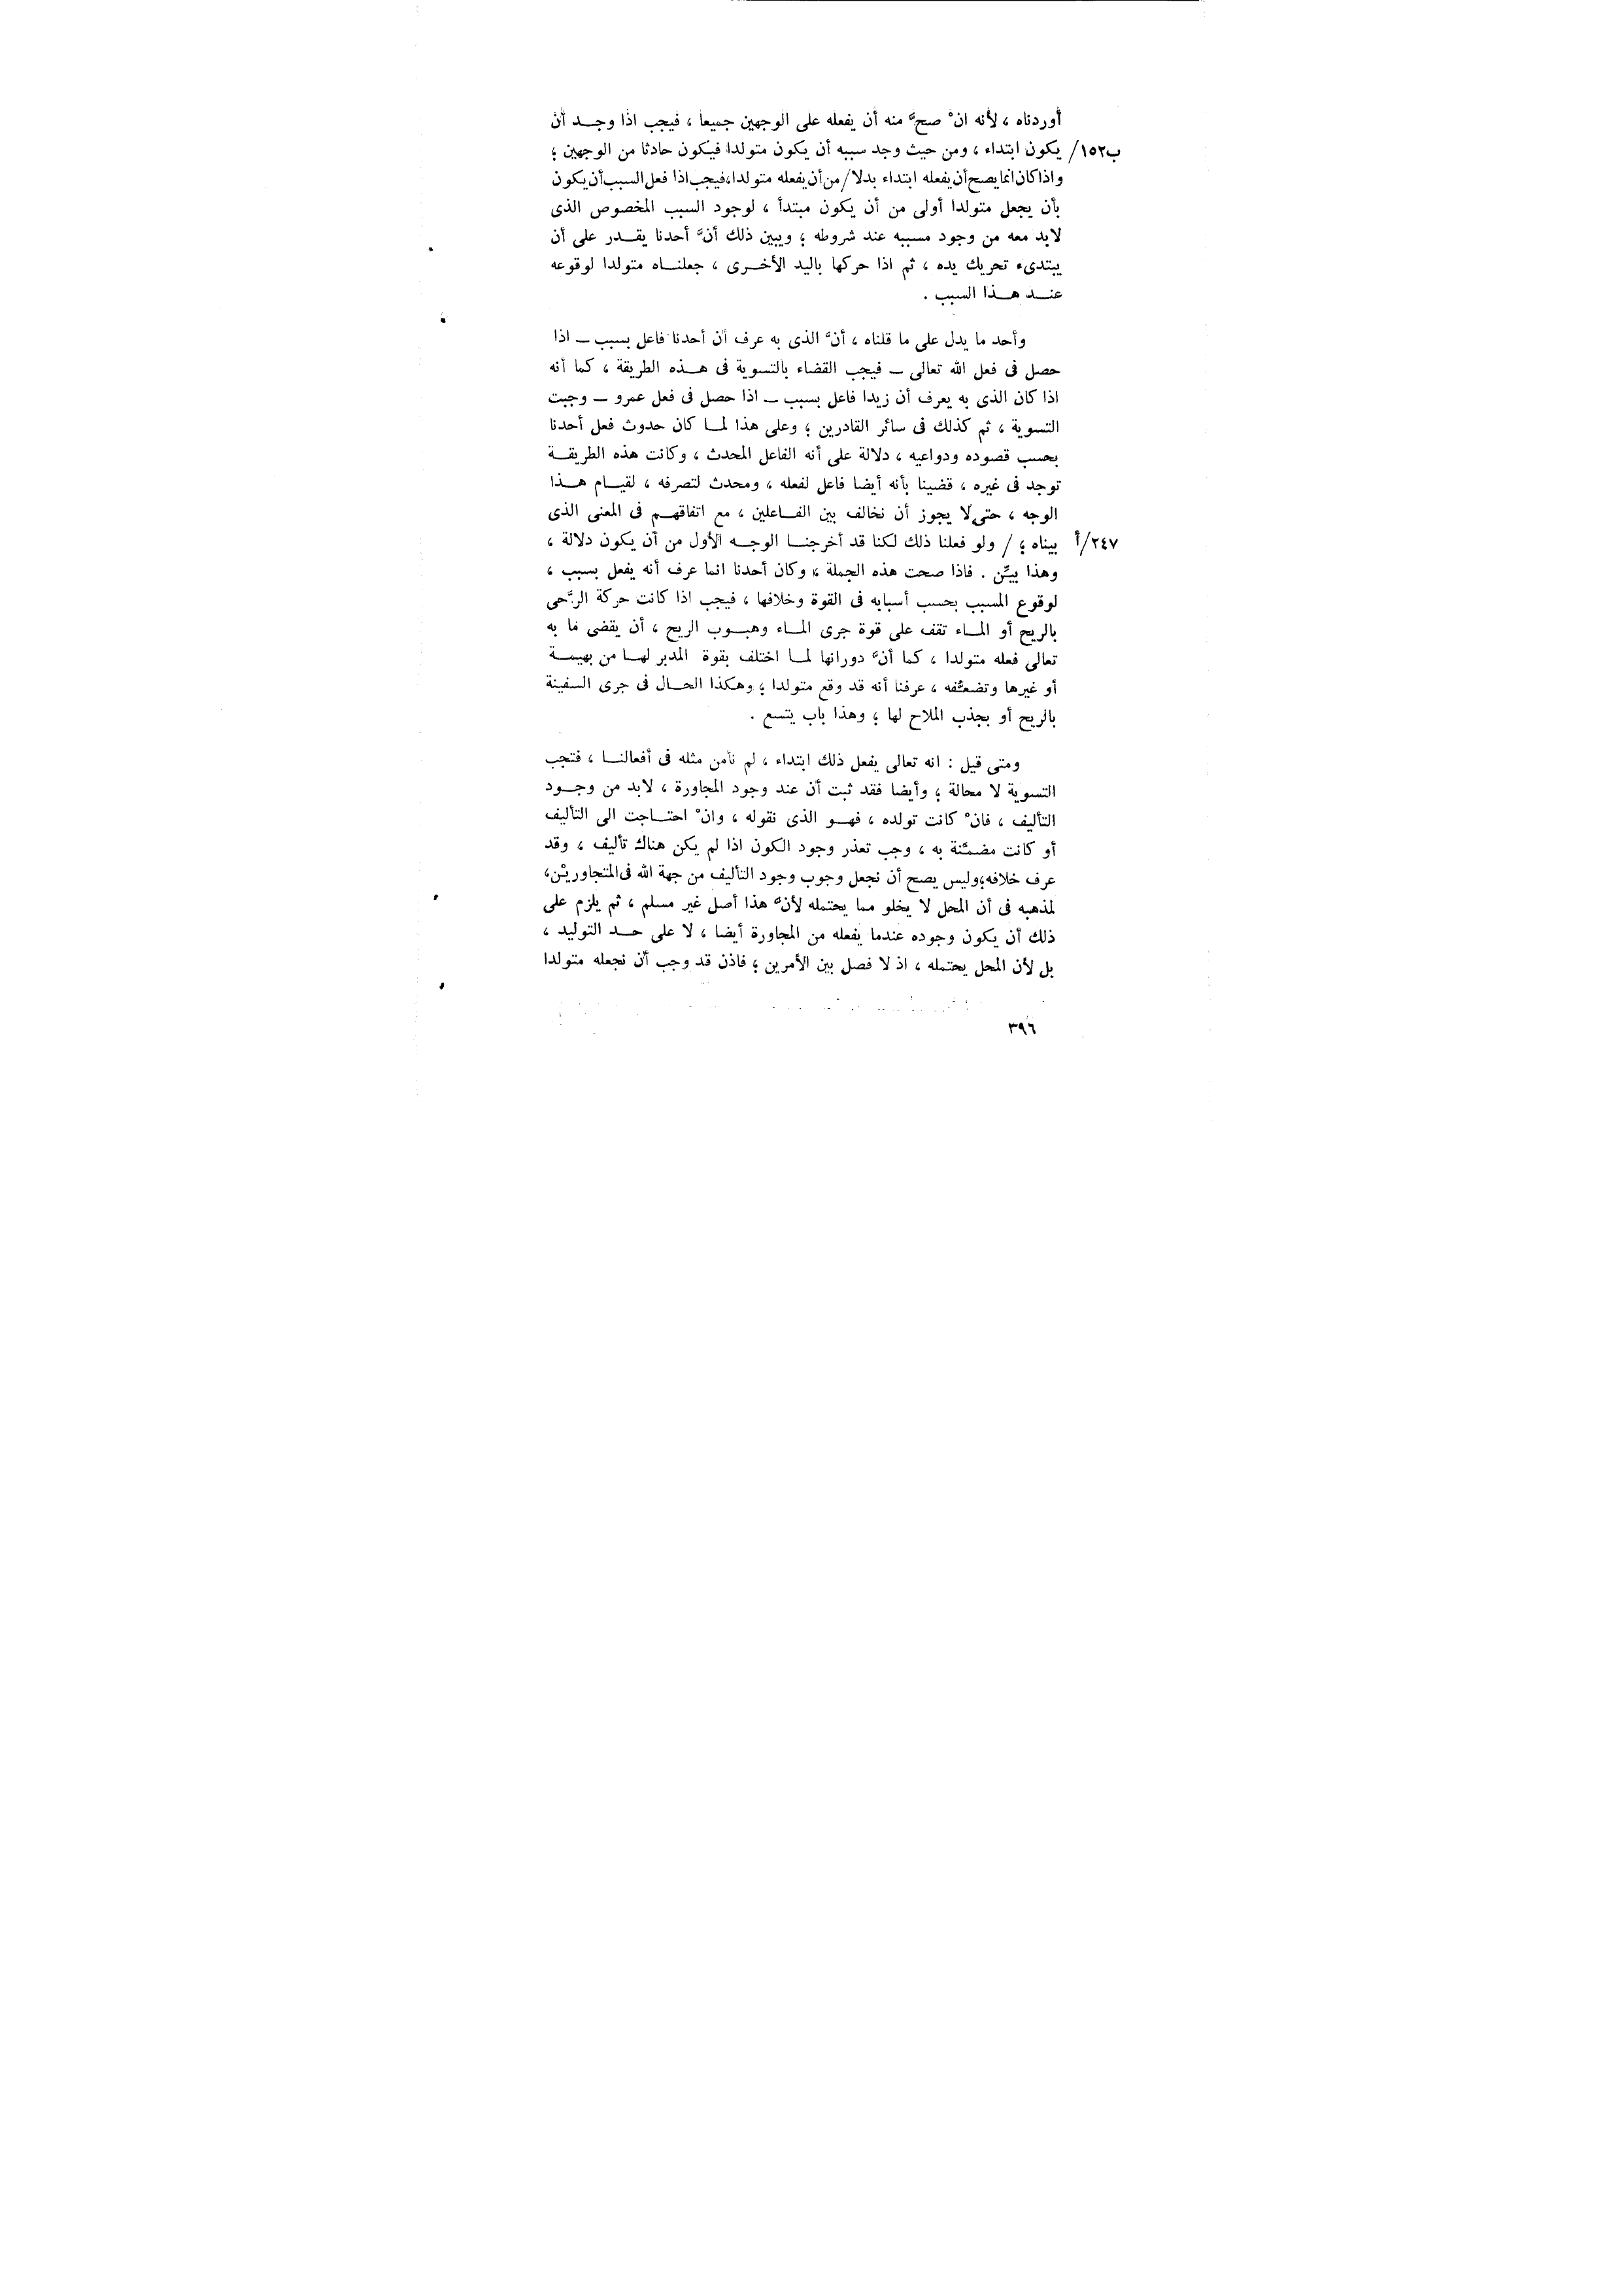 أوردناه ، لأنه ان° صح" منه أن يفعله على الوجهين جميعا ، فيجب اذا وجد أن
ب١٥٢/ يكون ابتداء ، ومن حيث وجد سببه أن يكون متولدا فيكون حادثا من الوجهين ؛
واذا كان انما يصح أن يفعله ابتداء بدلا / من أن يفعله متولدا، فيجب اذا فعل السبب أن يكون
بأن يجعل متولدا أولى من أن يكون مبتدأ ، لوجود السبب المخصوص الذى
لابد معه من وجود مسببه عند شروطه ؛ ويبين ذلك أنَّ أحدنا يقدر على أن
يبتدىء تحريك يده ، ثم اذا حركها باليد الأخرى ، جعلناه متولدا لوقوعه
عند هذا السبب .
وأحد ما يدل على ما قلناه ، أنَّ الذى به عرف أن أحدنا فاعل بسبب — اذا
حصل فى فعل الله تعالى — فيجب القضاء بالتسوية فى هذه الطريقة ، كما أنه
اذا كان الذى به يعرف أن زيدا فاعل بسبب — اذا حصل فى فعل عمرو — وجبت
التسوية ، ثم كذلك فى سائر القادرين ؛ وعلى هذا لما كان حدوث فعل أحدنا
بحسب قصوده ودواعيه ، دلالة على أنه الفاعل المحدث ، وكانت هذه الطريقة
توجد فى غيره ، قضينا بأنه أيضا فاعل لفعله ، ومحدث لتصرفه ، لقيام هذا
الوجه ، حتى لا يجوز أن نخالف بين الفاعلين ، مع اتفاقهم فى المعنى الذى
٢٤٧/أ بيناه ؛ / ولو فعلنا ذلك لكنا قد أخرجنا الوجه الأول من أن يكون دلالة ،
وهذا بيِّن . فاذا صحت هذه الجملة ، وكان أحدنا انما عرف أنه يفعل بسبب ،
لوقوع المسبب بحسب أسبابه فى القوة وخلافها ، فيجب اذا كانت حركة الرَّحى
بالريح أو الماء تقف على قوة جرى الماء وهبوب الريح ، أن يقضى ما به
تعالى فعله متولدا ، كما أنَّ دورانها لما اختلف بقوة المدبر لها من بهيمة
أو غيرها وتضعُّفه ، عرفنا أنه قد وقع متولدا ؛ وهكذا الحال فى جرى السفينة
بالريح أو بجذب الملاح لها ؛ وهذا باب يتسع .
ومتى قيل : انه تعالى يفعل ذلك ابتداء ، لم نأمن مثله فى أفعالنا ، فتجب
التسوية لا محالة ؛ وأيضا فقد ثبت أن عند وجود المجاورة ، لابد من وجود
التأليف ، فان° كانت تولده ، فهو الذى نقوله ، وان° احتاجت الى التأليف
أو كانت مضمَّنة به ، وجب تعذر وجود الكون اذا لم يكن هناك تأليف ، وقد
عرف خلافه؛ وليس يصح أن نجعل وجوب وجود التأليف من جهة الله فى المتجاوريْن،
لمذهبه فى أن المحل لا يخلو مما يحتمله لأنَّ هذا أصل غير مسلم ، ثم يلزم على
ذلك أن يكون وجوده عندما يفعله من المجاورة أيضا ، لا على حد التوليد ،
بل لأن المحل يحتمله ، اذ لا فصل بين الأمرين ؛ فاذن قد وجب أن نجعله متولدا
٣٩٦